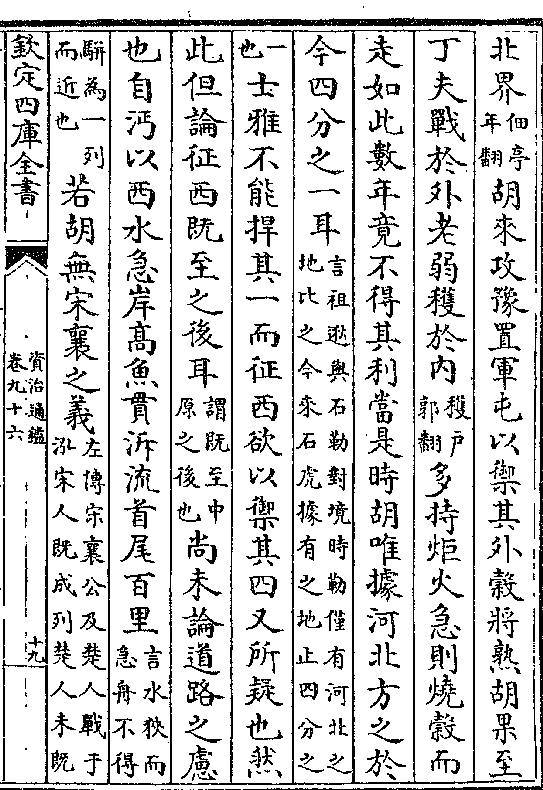 北界佃亭年翻胡來攻豫置軍屯以禦其外穀將熟胡果至
丁夫戰於外老弱穫於内穫戸郭翻多持炬火急則燒穀而
走如此數年竟不得其利當是時胡唯據河北方之於
今四分之一耳言祖逖與石勒對境時勒僅有河北之地比之今來石虎據有之地止四分之
一也士雅不能捍其一而征西欲以禦其四又所疑也然
此但論征西既至之後耳謂既至中原之後也尚未論道路之慮
也自沔以西水急岸髙魚貫泝流首尾百里言水狹而急舟不得
駢為一列而近也若胡無宋襄之義左傳宋襄公及楚人戰于泓宋人既成列楚人未既
欽定四庫全書
資治通鑑
卷九十六
十九